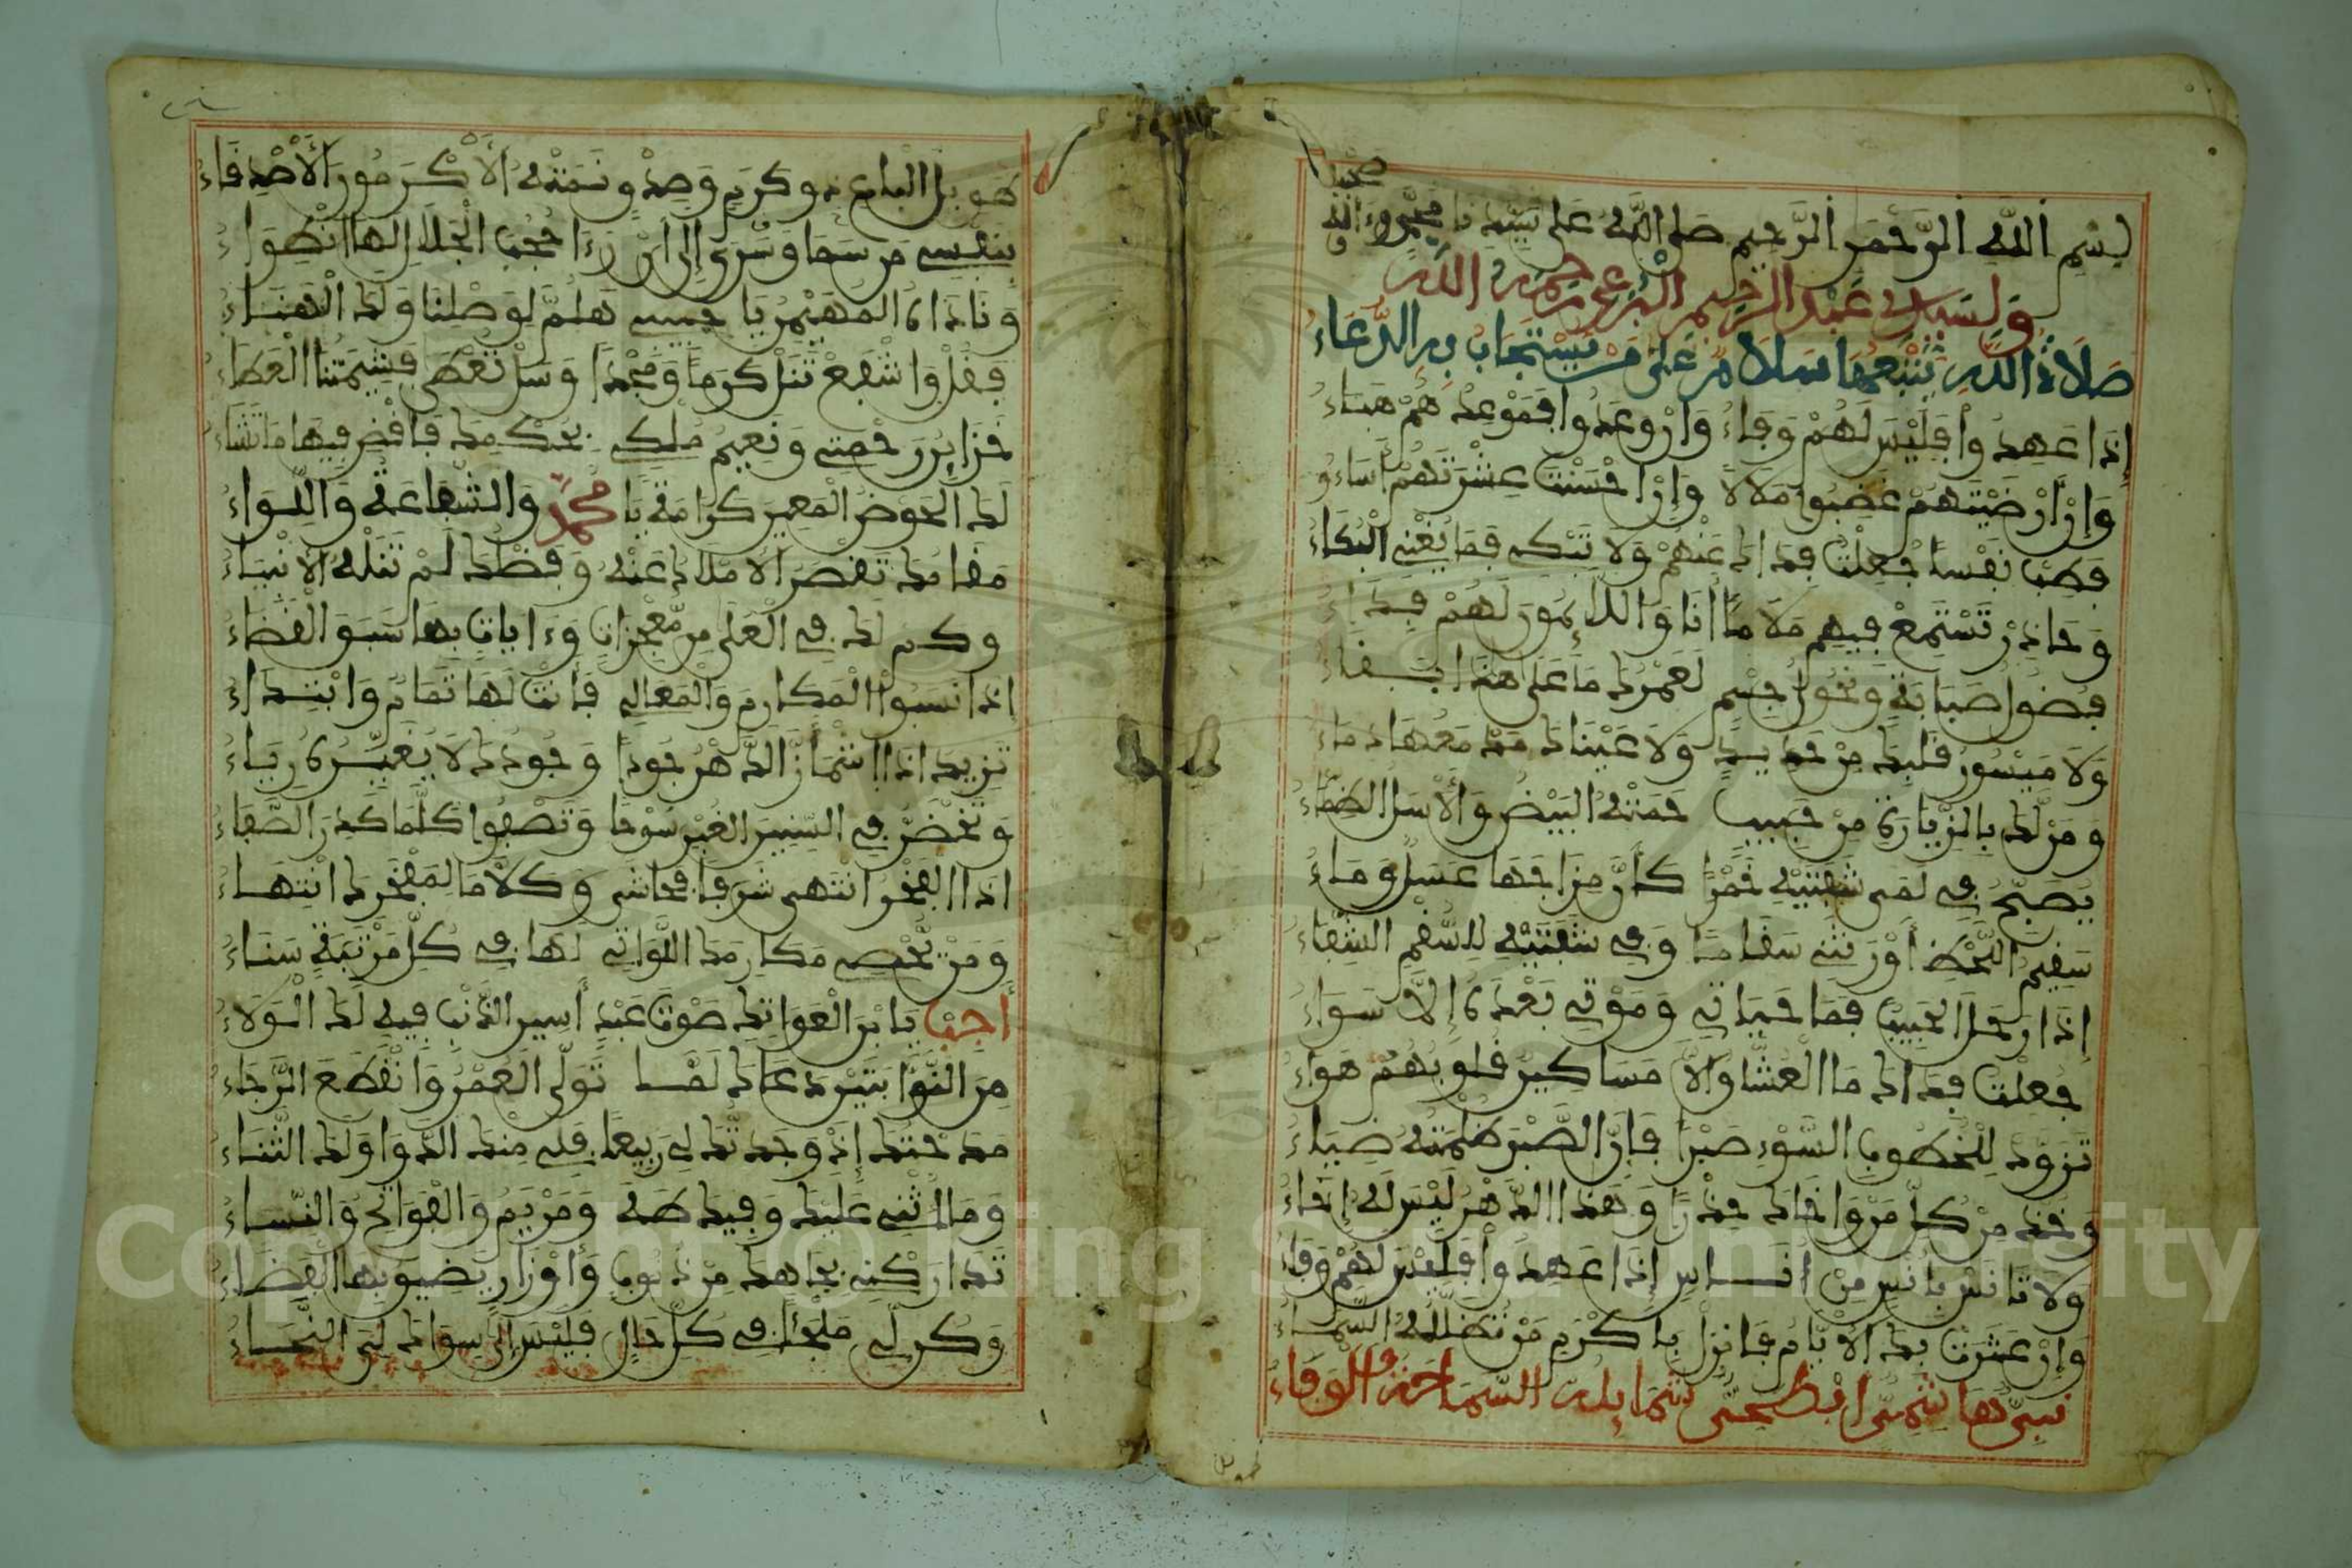 بِسْمِ اللَّهِ الرَّحْمَنِ الرَّحِيمِ صَلَّى اللَّهُ عَلَى سَيِّدِنَا مُحَمَّدٍ وَءَالِهِ
وَصَحْبِهِ
وَلِسَيِّدِي عَبْدِ الرَّحِيمِ الْبُرَعِي رَحِمَهُ اللَّهُ
صَلَاةُ اللَّهِ يَتْبَعُهَا سَلَامٌ عَلَى مَنْ يُسْتَجَابُ بِهِ الدُّعَاءُ
إِذَا عَهِدُوا فَلَيْسَ لَهُمْ وَفَاءُ وَإِنْ وَعَدُوا فَمَوْعِدُهُمْ هَبَاءُ
وَإِنْ أَرْضَيْتَهُمْ غَضِبُوا مَلَالًا وَإِنْ احْسَنْتَ عِشْرَتَهُمْ أَسَاءُو
فَطِبْ نَفْسًا جُعِلْتُ فِدَاكَ عَنْهُمْ وَلَا تَبْكِ فَمَا يُغْنِي الْبُكَاءُ
وَحَاذِرْ تَسْتَمِعْ فِيهِمْ مَلَامًا أَنَا وَاللَّائِمُونَ لَهُمْ فِدَاءُ
فُضُولُ صَبَابَةٍ وَنُحُولُ جِسْمٍ لَعَمْرُكَ مَا عَلَى هَذَا بَقَاءُ
وَلَا مَيْسُورُ قَلْبِكَ مِنْ حَدِيدٍ وَلَا عَيْنَاكَ مَدْمَعُهَا دِمَاءُ
وَمَنْ لَكَ بِالزِّيَارَةِ مِنْ حَبِيبٍ حَمَتْهُ الْبِيضُ وَالْأَسَلُ الظِّمَاءُ
يُصَبِّحُ فِي لَمَى شَفَتَيْهِ خَمْرًا كَأَنَّ مِزَاجَهَا عَسَلٌ وَمَاءُ
سَقِيمُ اللَّحْظِ أَوْرَثَنِي سَقَامًا وَفِي شَفَتَيْهِ لِلسُّقْمِ الشِّفَاءُ
إِذَا رَحَلَ الْحَبِيبُ فَمَا حَيَاتِي وَمَوْتِي بَعْدَهُ إِلَّا سَوَاءُ
جُعِلْتُ فِدَاكَ مَا الْعُشَّاقُ إِلَّا مَسَاكِينٌ قُلُوبُهُمْ هَوَاءُ
تَزَوَّدْ لِلْخُطُوبِ السُّوءِ صَبْرًا فَإِنَّ الصَّبْرَ ظُلْمَتُهُ ضِيَاءُ
وَخُذْ مِنْ كُلِّ مَنْ وَاخَاكَ حِذْرًا وَهَذَا الدَّهْرُ لَيْسَ لَهُ إِخَاءُ
وَلَا تَانَسْ بِانْسٍ مِنْ انَاسٍ إِذَا عَهِدُوا فَلَيْسَ لَهُمْ وَفَاءُ
وَإِنْ عَثَرَتْ بِكَ الْأَيَّامُ فَانْزِلْ بِاكْرَمِ مَنْ تُظَلِّلُهُ السَّمَاءُ
نَبِيٌّ هَاشِمِيٌّ ابْطَحِيٌّ شَمَايِلُهُ السَّمَاحَةُ وَالْوَفَاءُ
هُوَ بَلِ الْبَاعِ ذُو كَرَمٍ وَصِدْقٍ نَمَتْهُ الْأَكْرَمُونَ الْأَصْدِقَاءُ
بِنَفْسِي مَنْ سَمَا وَسَرَى إِلَى أَنْ رَءَا حُجُبَ الْجَلَالِ لَهَا انْطِوَاءُ
وَنَادَاهُ الْمُهَيْمِنُ يَا حَبِيبِي هَلُمَّ لِوَصْلِنَا وَلَكَ الْهَنَاءُ
فَقُلْ وَاشْفَعْ تَنَلْ كَرَمًا وَمَجْدًا وَسَلْ تُعْطَى فَشِيمَتُنَا الْعَطَاءُ
خَزَائِنُ رَحْمَتِي وَنَعِيمُ مُلْكِي بِحُكْمِكَ فَاقْضِ فِيهَا مَا تَشَاءُ
لَكَ الْحَوْضُ الْمَعِينُ كَرَامَةً يَا مُحَمَّدُ وَالشَّفَاعَةُ وَاللِّوَاءُ
مَقَامُكَ تَقْصُرُ الْأَمْلَاكُ عَنْهُ وَفَضْلُكَ لَمْ تَنَلْهُ الْأَنْبِيَاءُ
وَكَمْ لَكَ فِي الْعُلَى مِنْ مُعْجِزَاتٍ وَءَايَاتٍ بِهَا سَبَقَ الْقَضَاءُ
إِذَا نَسَبُوا الْمَكَارِمَ وَالْمَعَالِي فَأَنْتَ لَهَا تَمَامٌ وَابْتِدَاءُ
تَزِيدُ اذَا اشْمَأَزَّ الدَّهْرُ جُودًا وَجُودُكَ لَا يُغَيِّرُهُ رِيَاءُ
وَتَخْضَرُّ فِي السِّنِينَ الْغُبْرِ سُوحًا وَتَصْفُوا كُلَّمَا كَدُرَ الصَّفَاءُ
اذَا الْفَخْرُ انْتَهَى شَرَفًا فَحَاشَى وَكَلَّا مَا لِفَخْرِكَ انْتِهَاءُ
وَمَنْ يُحْصِي مَكَارِمَكَ اللَّوَاتِي لَهَا فِي كُلِّ مَرْتَبَةٍ سَنَاءُ
أَجِبْ يَا بْنَ الْعَوَاتِكِ صَوْتَ عَبْدٍ أَسِيرِ الذَّنْبِ فِيهِ لَكَ الْوَلَاءُ
تَوَلَّى الْعُمْرُ وَانْقَطَعَ الرَّجَاءُ
مَدَحْتُكَ إِذْ وَجَدْتُكَ لِي رَبِيعًا فَلِي مِنْكَ الدَّوَا وَلَكَ الثَّنَاءُ
وَمَا أُثْنِي عَلَيْكَ وَفِيكَ طَهَ وَمَرْيَمُ وَالْفَوَاتِحُ وَالنِّسَاءُ
تَدَارَكْنِي بِجَاهِكَ مِنْ ذُنُوبٍ وَأَوْزَارٍ يَضِيقُ بِهَا الْفَضَاءُ
وَكُنْ لِي مَلْجَأً فِي كُلِّ حَالٍ فَلَيْسَ إِلَى سِوَاكَ لِيَ الْتِجَاءُ
Copyright © King Saud University